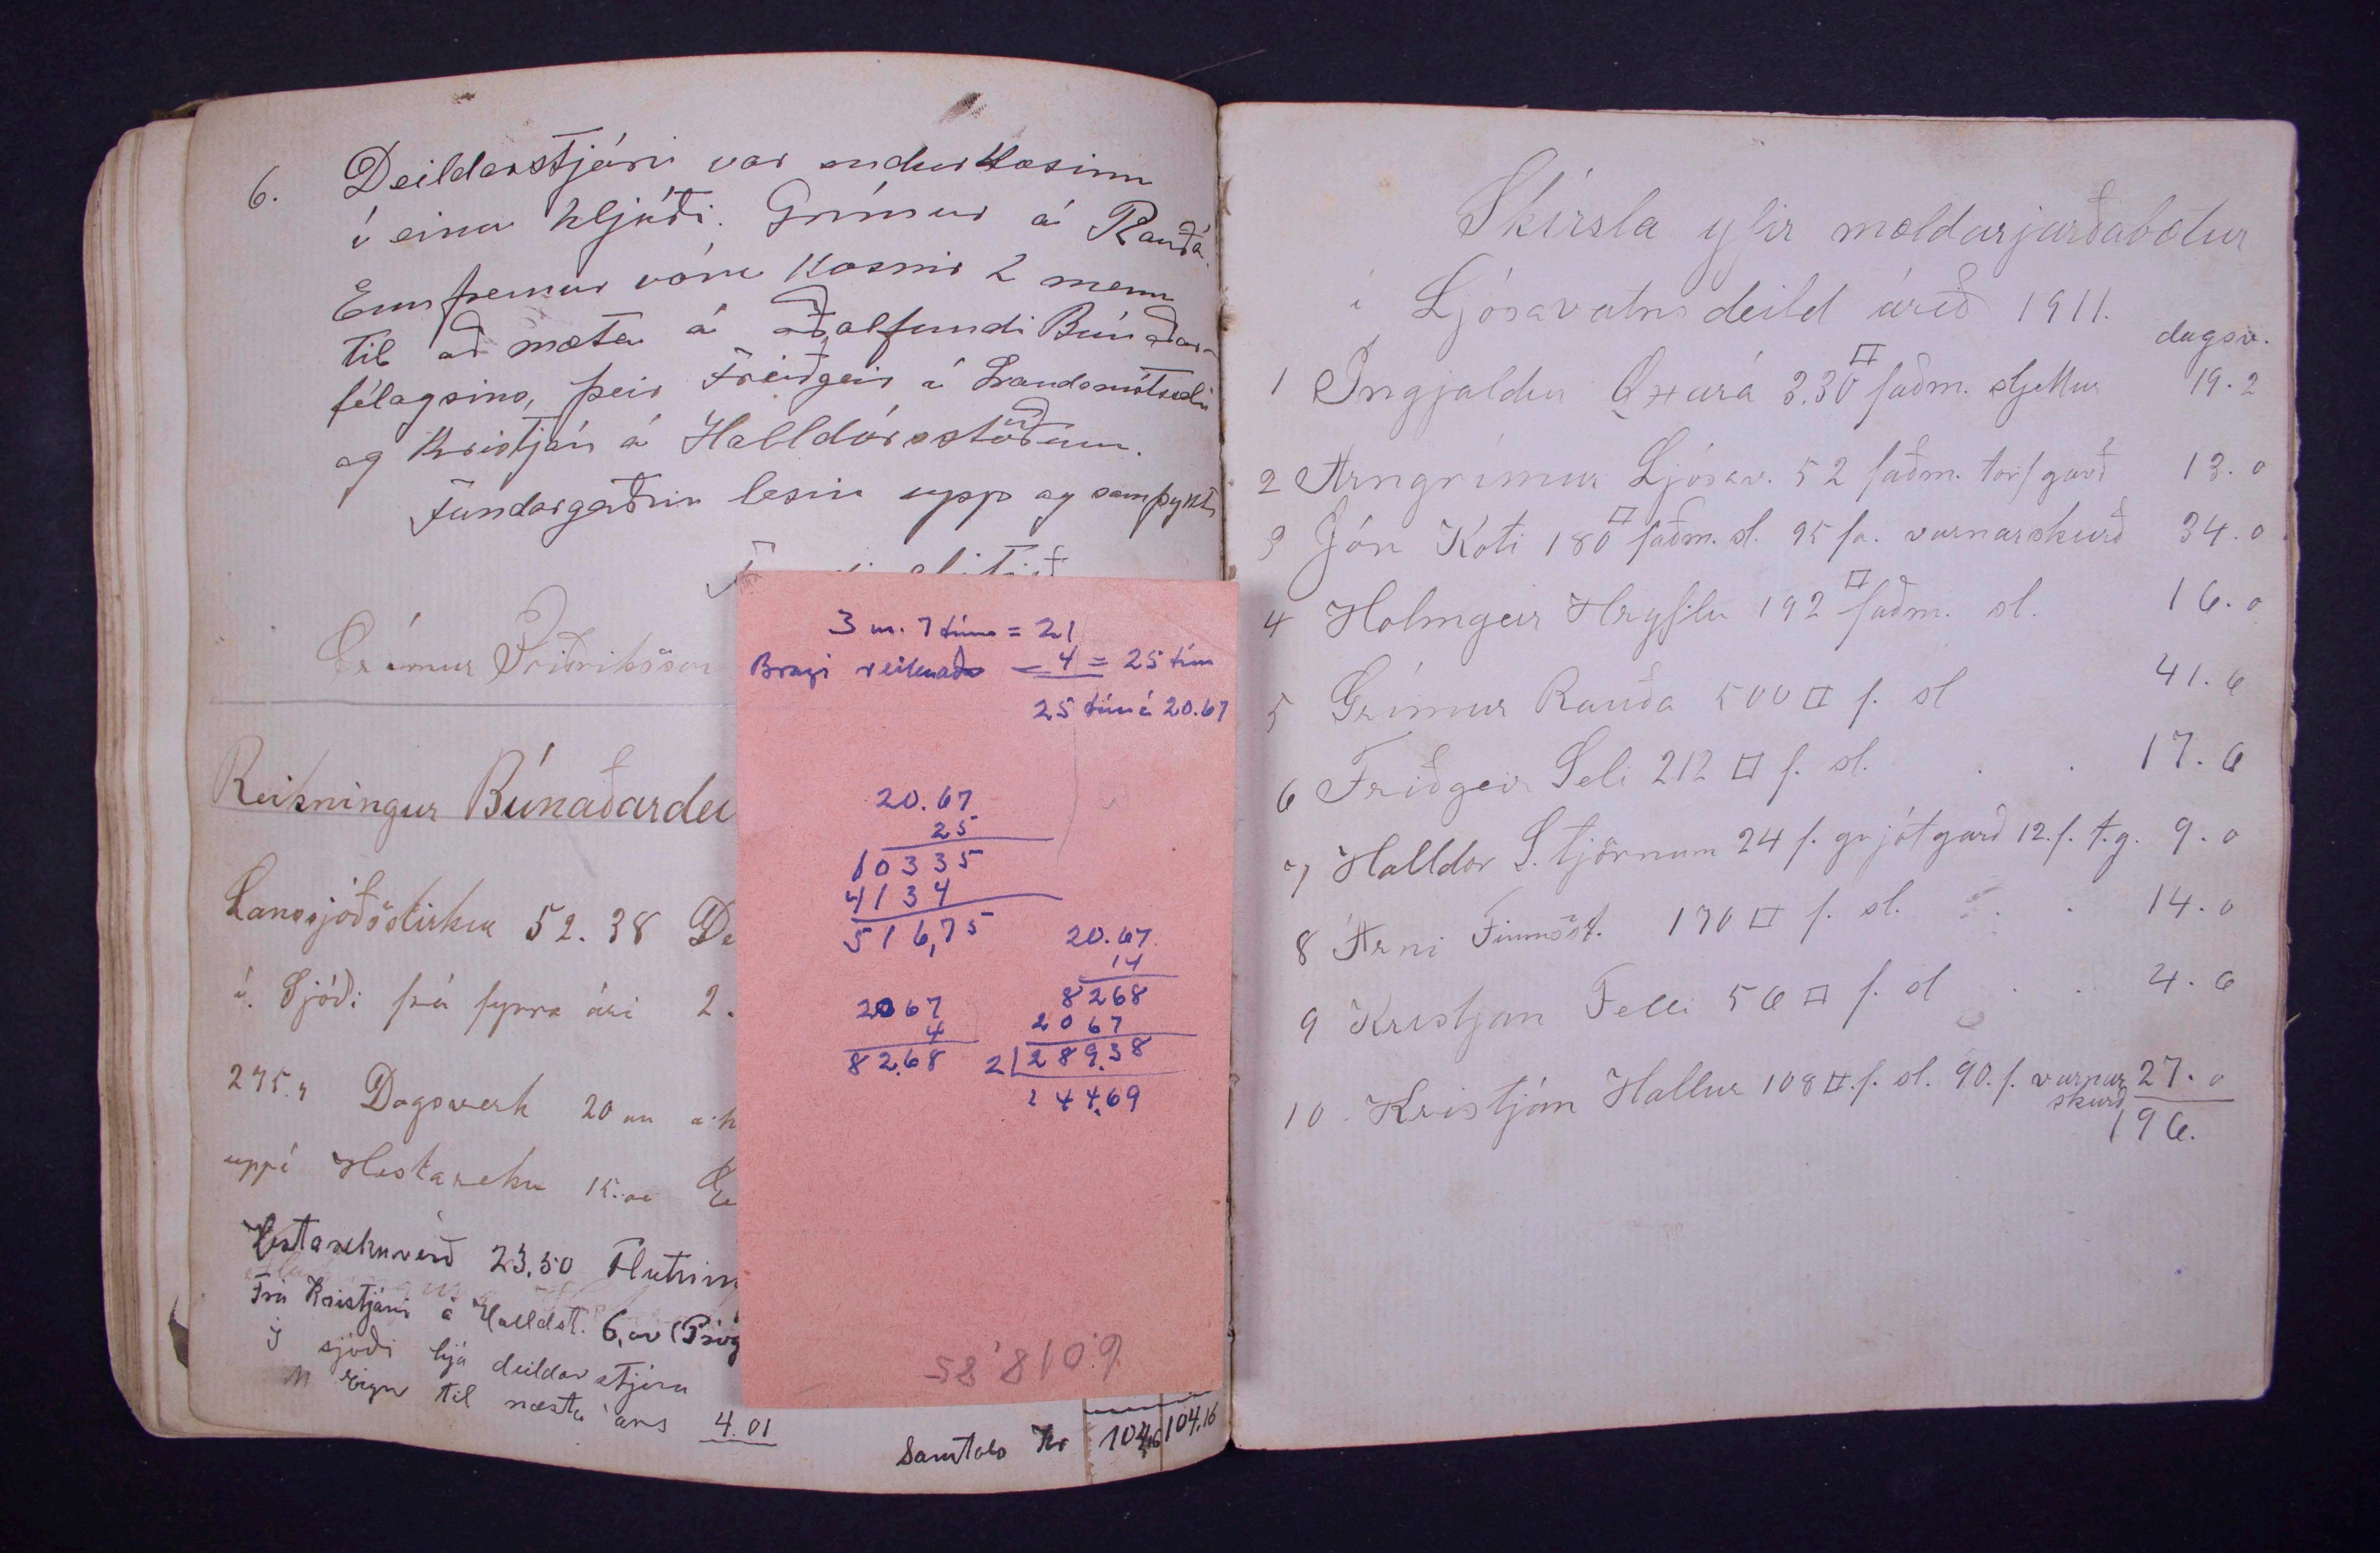 6. Deildarstjóri var endurkosinn
í einu hljóði. Grímur á Rauðá.
Ennfremur vóru kosnir 2 menn
til að mæta á aðalfundi Búnaðar-
félagsins, þeir Freiðgeir í Landamótsseli
og Kristján á Halldórsstöðum.
Fundargerðin lesin upp og samþykt
Grímur Friðriksson
Reikningur Búnaðardei
Lanssjóðsstirkur 52.38 De
í Sjóði frá fyrra ári 2.
Dagsverk 20 au
uppí Hestareku 15.00
Hestarekuverð 23,50 Flutning
Frá Kristjáni á Halldst. 6,00
Í sjóði hjá deildarstjóra
Eign til næsta árs 4.01
Samtals Kr 104,16 104.16
3 m. 7 tíma = 21
Bragi reiknaða — 4 = 25 tím
25 tím á 20.67
20.67
25
10335
4134
516,75
20.67
14
8268
2067
2|289.38
144.69
2067
4
82.68
6018.85
Skírsla yfir mældarjarðabætur
í Ljósavatnsdeild árið 1911.
dagsv.
1 Ingjaldur Öxará 3.30 □ faðm. sljettur 19.2
2 Arngrímur Ljósav. 52 faðm. torfgarð 13.0
3 Jón Koti 180 □ faðm. sl. 95 fa. varnarskurð 34.0
4 Holmgeir Hryflu 192 □ faðm. sl. 16.0
5 Grímur Rauða 500 □ f. sl 41.6
6 Friðgeir Seli 212 □ f. sl. 17.6
7 Halldor S. tjörnum 24 f. grjótgarð 12. f. t.g. 9.0
8 Árni Finnsst. 170 □ f. sl. 14.0
9 Kristjan Felli 56 □ f. sl 4.6
10. Kristján Hallur 108 □. f. sl. 90. f. varnar 27.0
skurð
196.